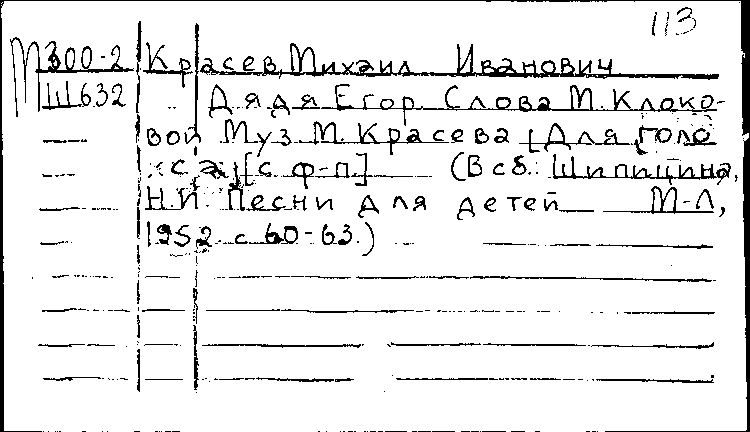 113
М300-2 Красев, Михаил Иванович
Ш632 Дядя Егор. Слова М. Клоко-
вой Муз. М. Красева [Для голо
са] [с ф-п.] (В сб.: Шипицина,
Н.И. Песни для детей М-Л,
1952. с 60-63.)